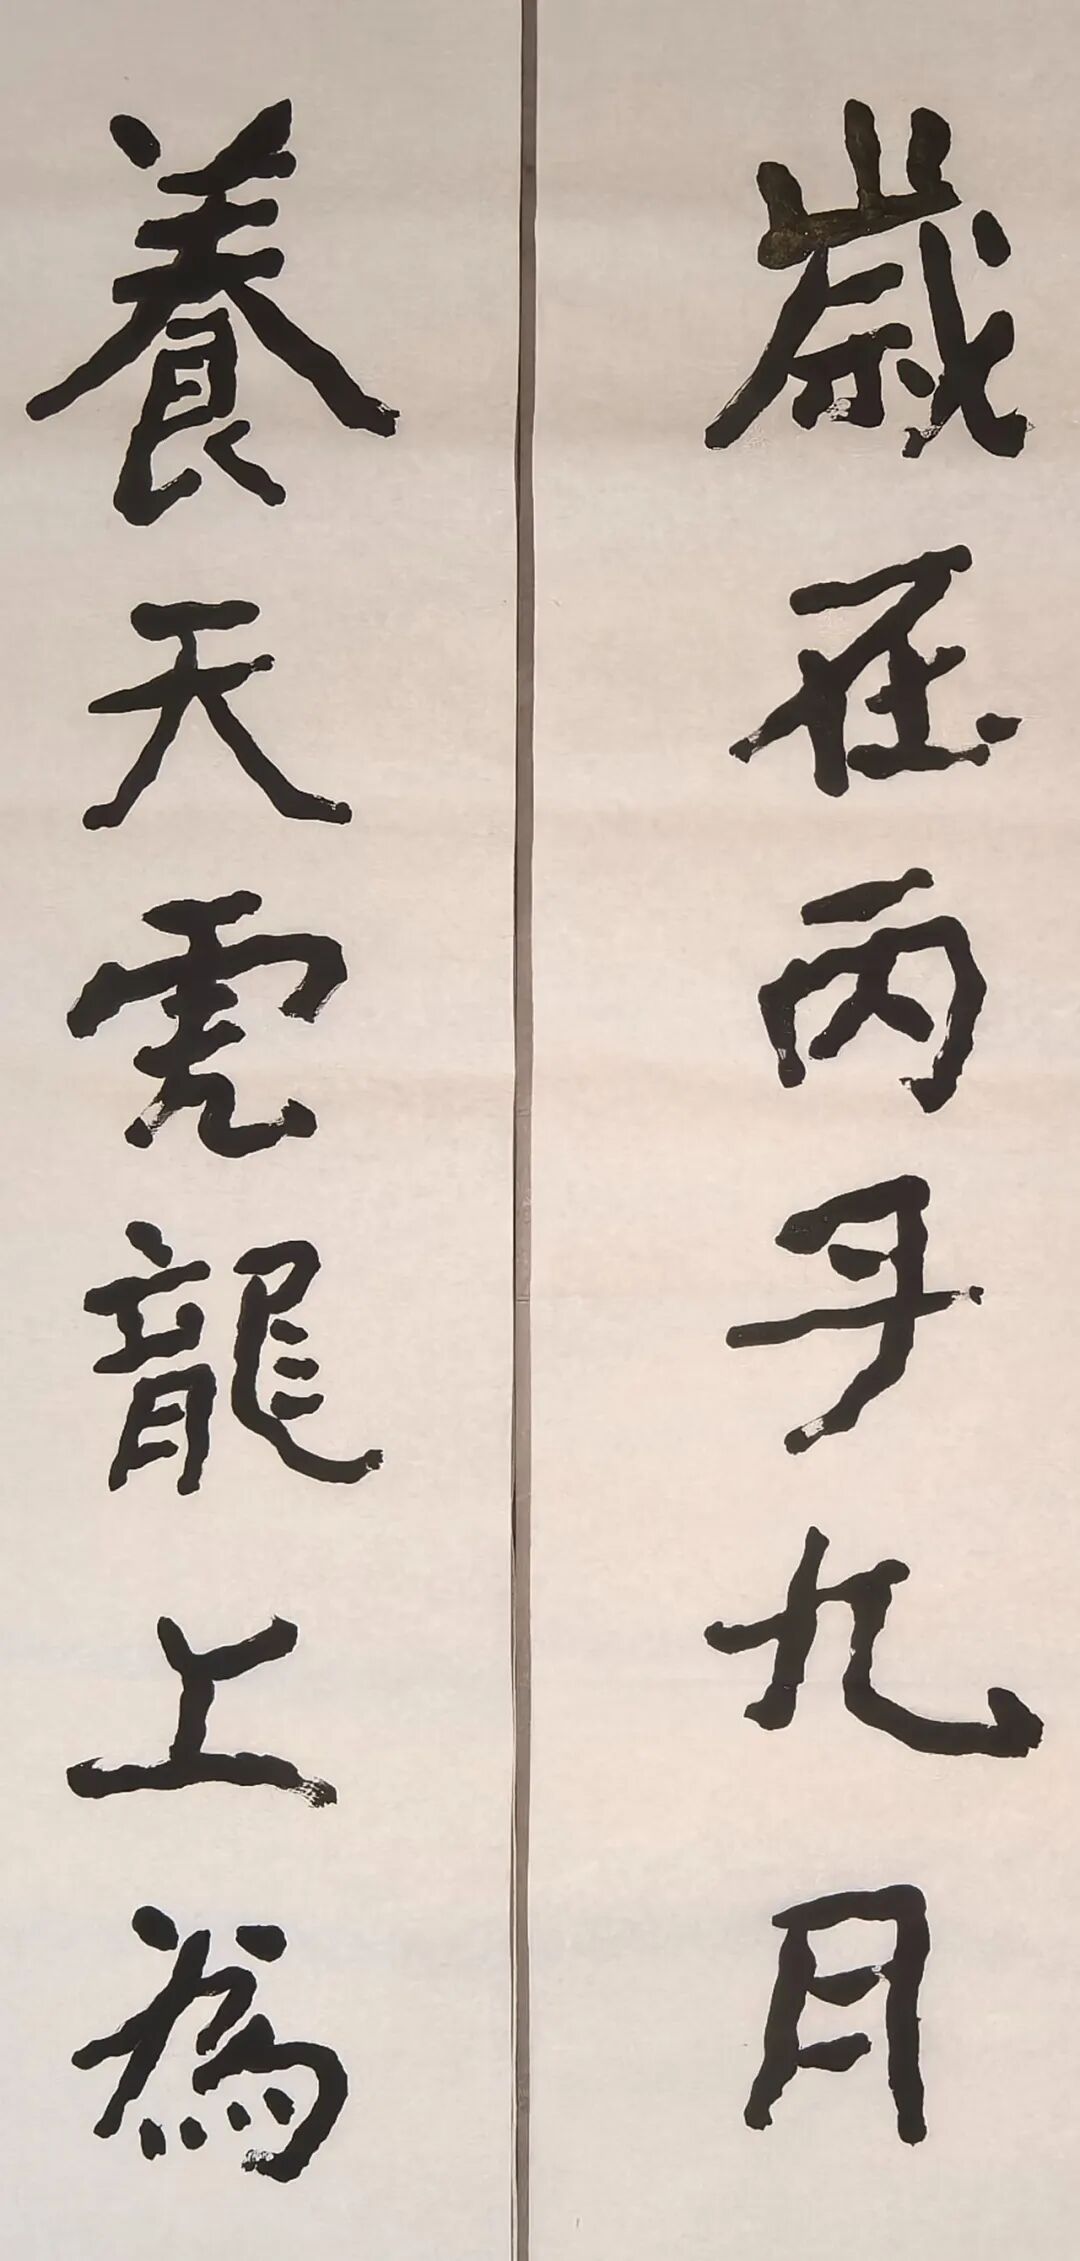 歲在丙子九月
養天虎龍上為